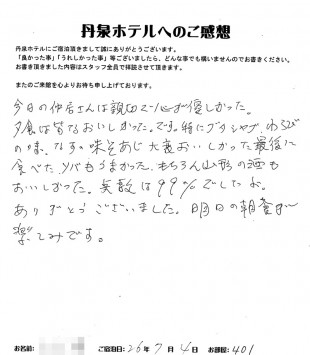 丹泉ホテルへのご感想
丹泉ホテルにご宿泊頂きまして誠にありがとうございます。
「良かった事」「うれしかった事」等ございましたら、どんな事でも構いませんのでお書きください。
お書き頂きました内容はスタッフ全員で拝読させて頂きます。
またのご来館を心よりお待ち申し上げております。
今日の仲居さんは親切で心が優しかった。
夕食は皆なおいしかった。です。特にブタシャブ、わらび
の味、なすの味そあじ大変おいしかった最後に
食べた、ソバもうまかった、もちろん山形の酒も
おいしかった。点数は99％でしたよ。
ありがとうございました。明日の朝食が
楽しみです。
お名前: ご宿泊日: 26年 7月 4日 お部屋: 401